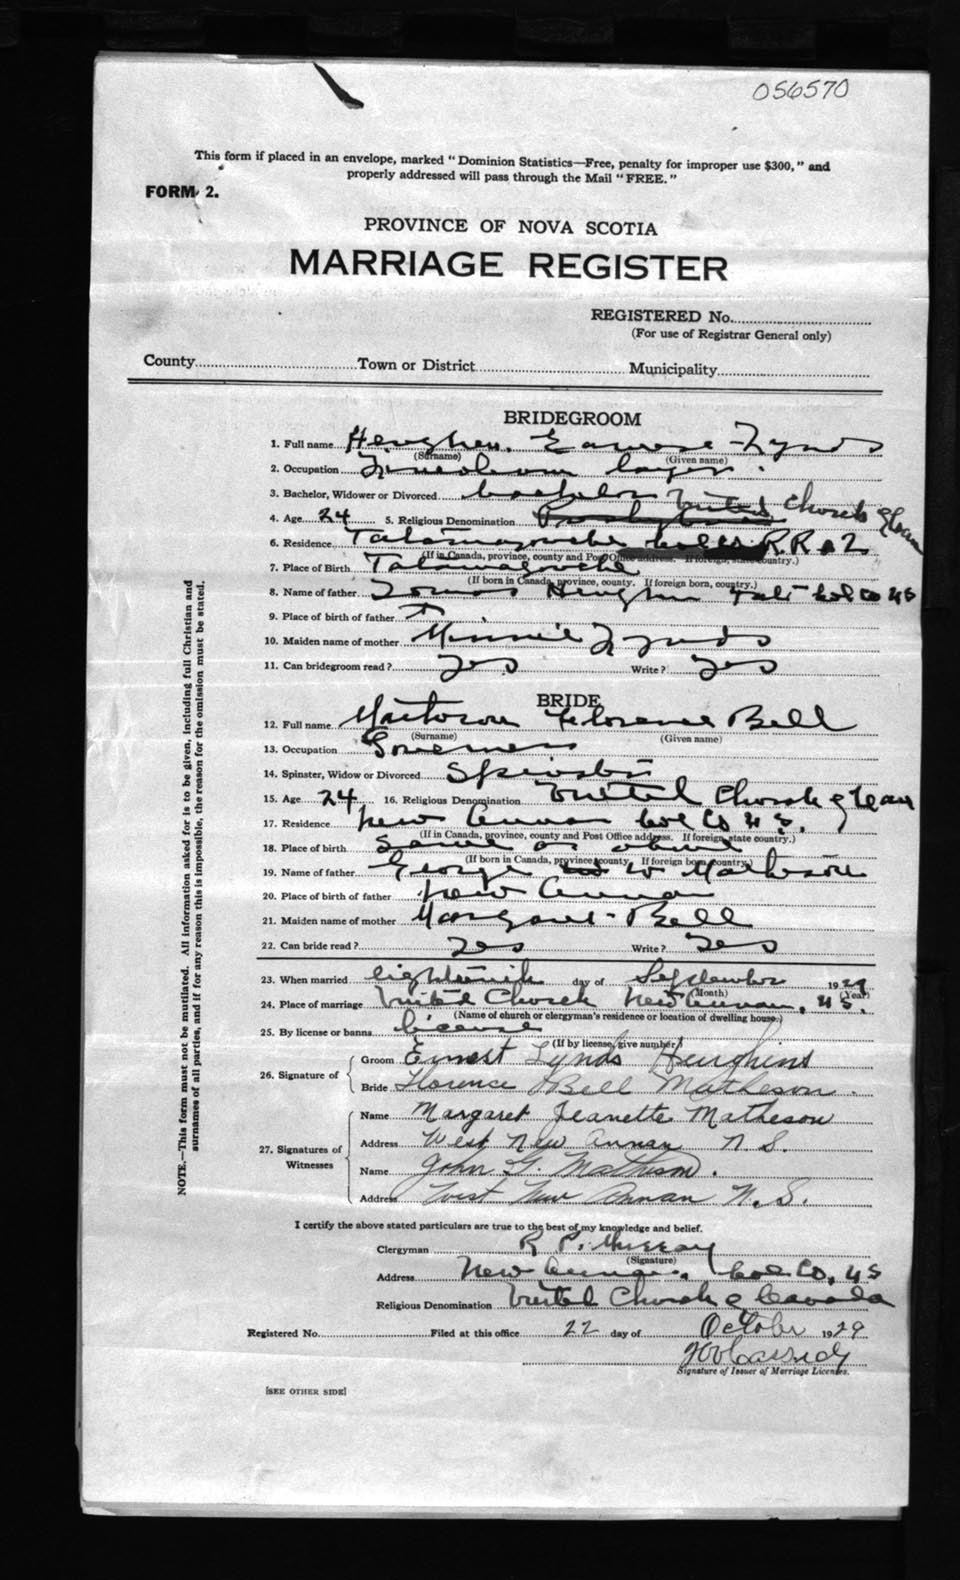 056570
This form if placed in an envelope, marked "Dominion Statistics—Free, penalty for improper use $300," and
properly addressed will pass through the Mail "FREE."
FORM 2.
PROVINCE OF NOVA SCOTIA
MARRIAGE REGISTER
REGISTERED No.
(For use of Registrar General only)
County Town or District Municipality
BRIDEGROOM
1. Full name Lynds
(Surname) (Given name)
2. Occupation
3. Bachelor, Widower or Divorced bachelor United Church of Can
4. Age 24 5. Religious Denomination
6. Residence Tatamagouche Col Co R.R #2
(If in Canada, province, county and Post Office address. If foreign, state country.)
7. Place of Birth Tatamagouche
(If born in Canada, province, county. If foreign born, country.)
8. Name of father Tat Col Co NS
9. Place of birth of father
10. Maiden name of mother Minnie Lynds
11. Can bridegroom read? Yes Write? Yes
BRIDE
12. Full name Florence Bell
(Surname) (Given name)
13. Occupation Governess
14. Spinster, Widow or Divorced Spinster
15. Age 24 16. Religious Denomination United Church of Can
17. Residence New Annan Col Co N.S.
(If in Canada, province, county and Post Office address. If foreign, state country.)
18. Place of birth Same as above
(If born in Canada, province, county. If foreign born, country.)
19. Name of father George W Matheson
20. Place of birth of father New Annan
21. Maiden name of mother Margaret Bell
22. Can bride read? Yes Write? Yes
23. When married eighteenth day of September 1929
(Month) (Year)
24. Place of marriage United Church New Annan, N.S.
(Name of church or clergyman's residence or location of dwelling house.)
25. By license or banns license
(If by license, give number.)
26. Signature of
Groom Ernest Lynds Heughins
Bride Florence Bell Matheson.
27. Signatures of Witnesses
Name Margaret Jeanette Matheson
Address West New Annan N.S.
Name John G. Matheson.
Address West New Annan N.S.
I certify the above stated particulars are true to the best of my knowledge and belief.
Clergyman R P. Murray
(Signature)
Address New Annan, Col Co, NS
Religious Denomination United Church of Canada
Registered No. Filed at this office 22 day of October 1929
Cassidy
Signature of Issuer of Marriage Licenses.
[SEE OTHER SIDE]
NOTE.—This form must not be mutilated. All information asked for is to be given, including full Christian and
surnames of all parties, and if for any reason this is impossible, the reason for the omission must be stated.